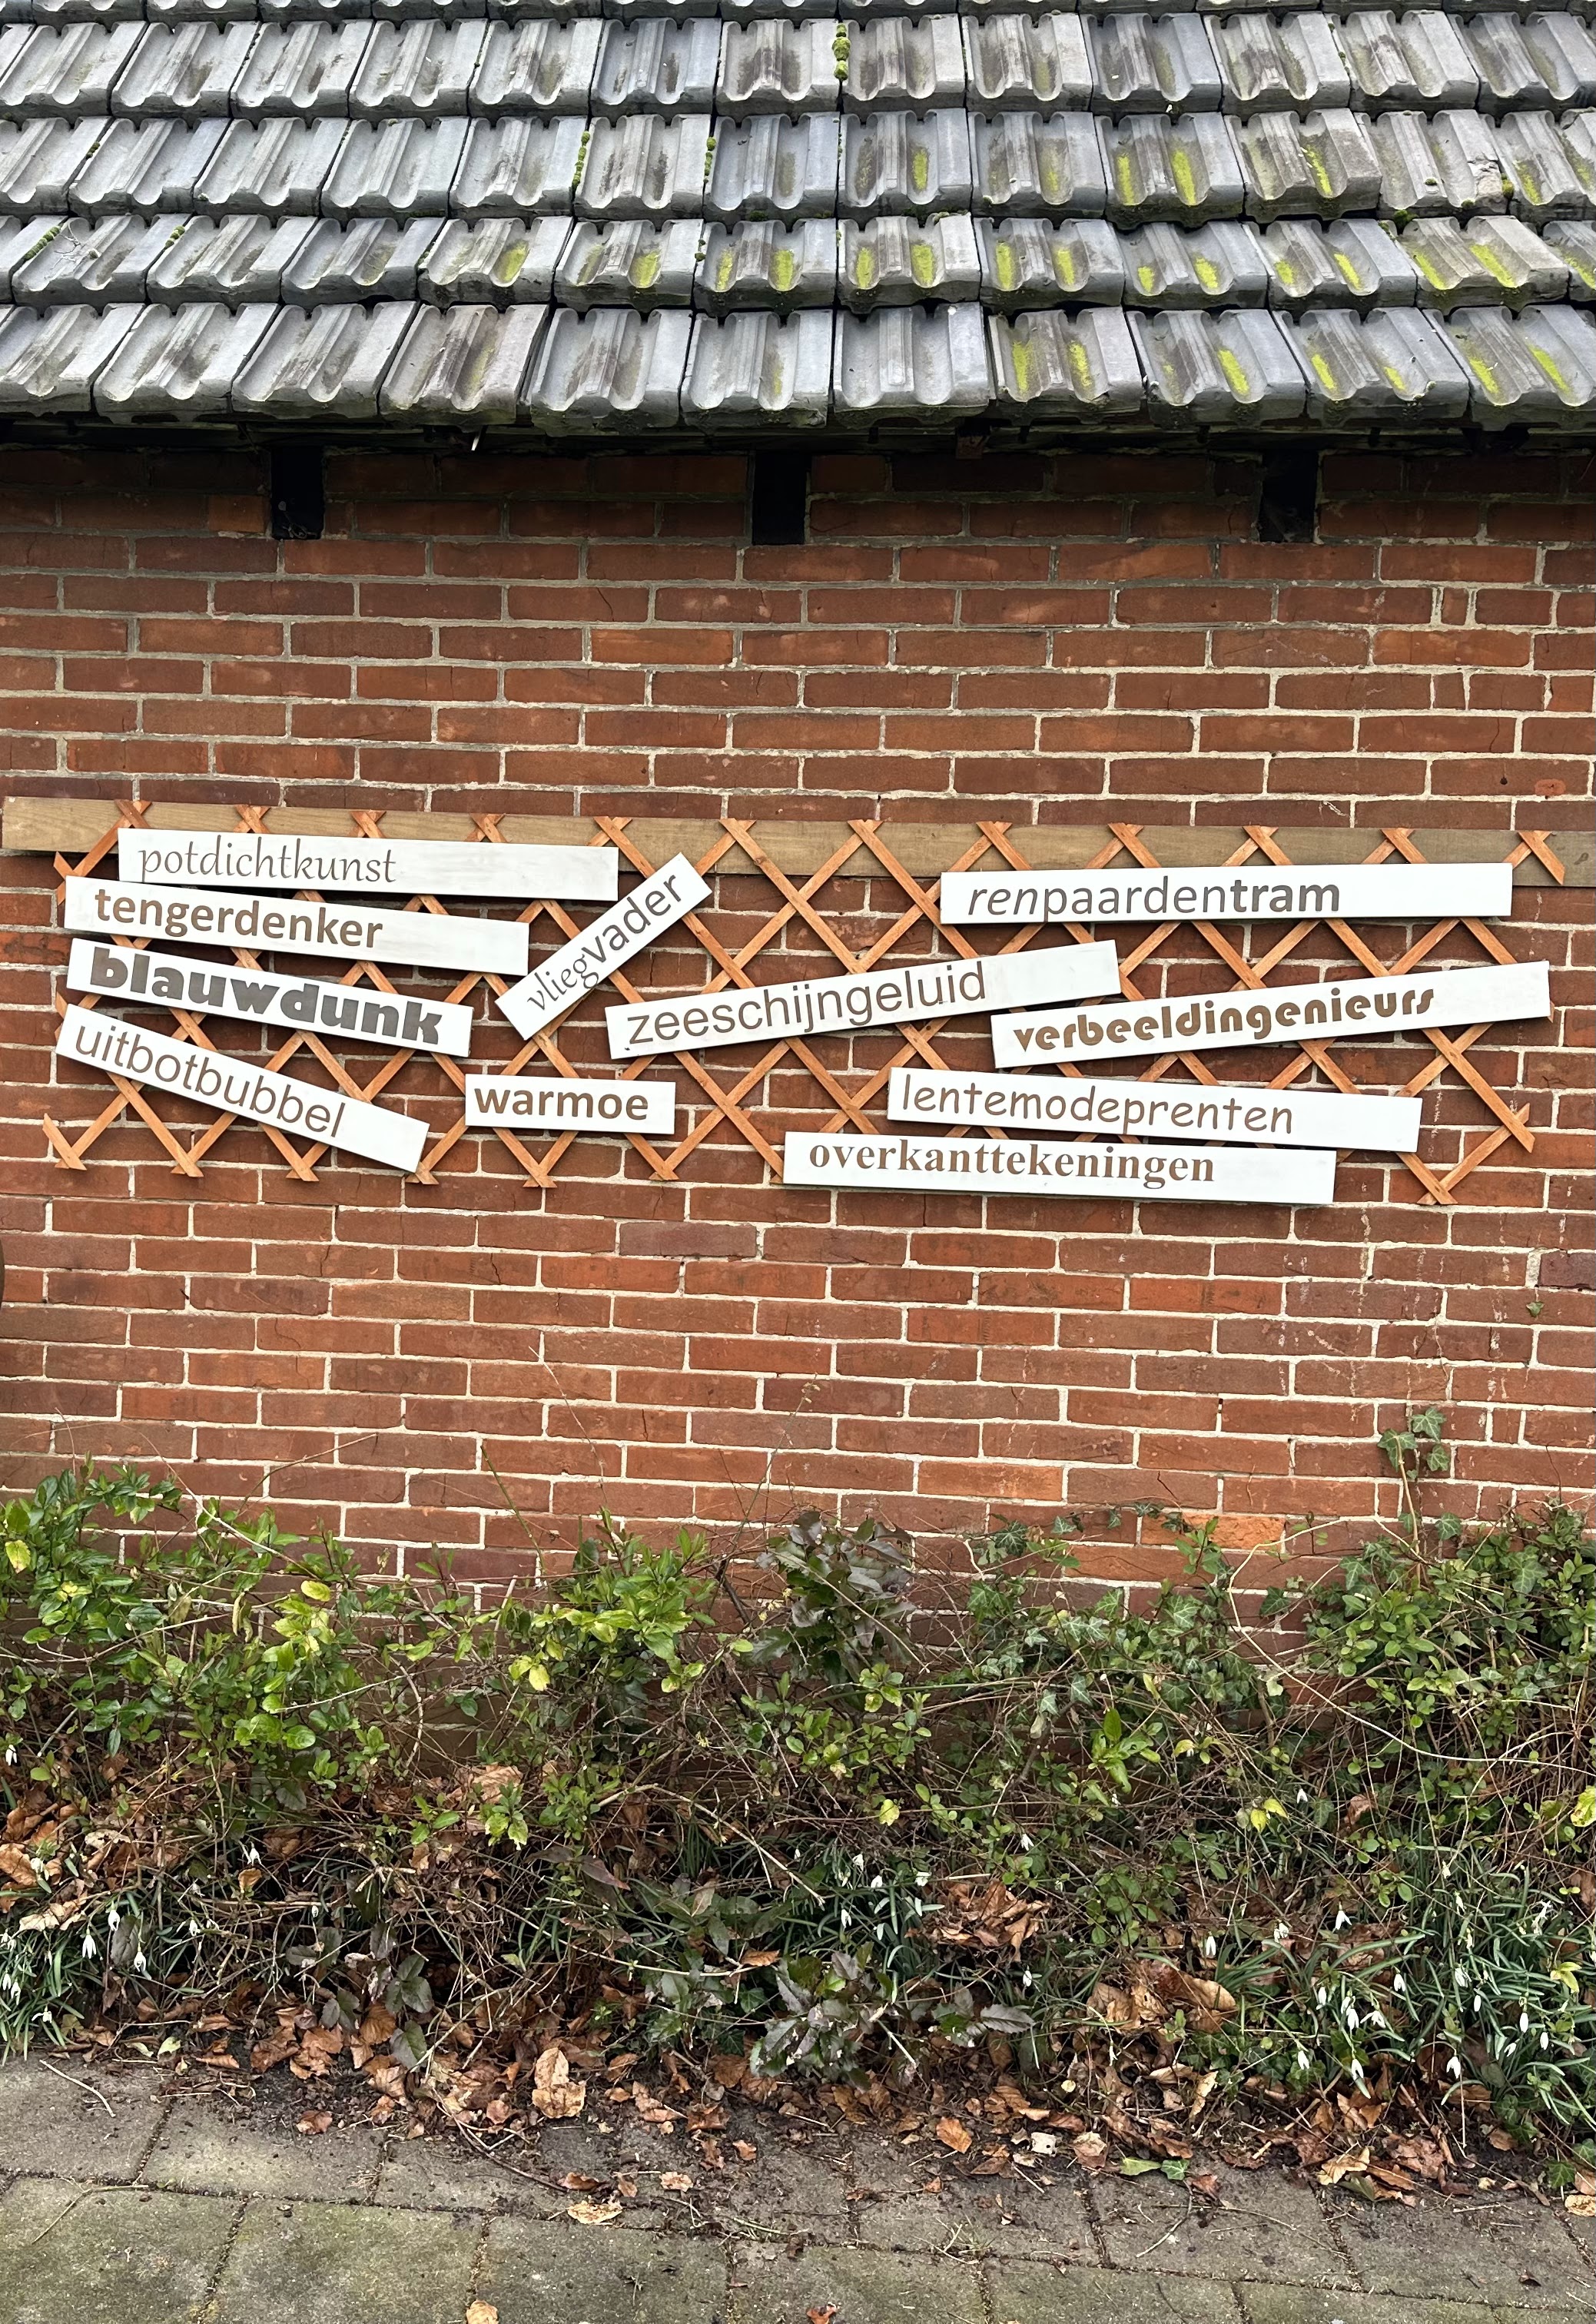 potdichtkunst
tengerdenker
blauwdunk
uitbotbubbel
vliegvader
warmoe
zeeschijngeluid
renpaardentram
verbeeldingenieurs
lentemodeprenten
overkanttekeningen